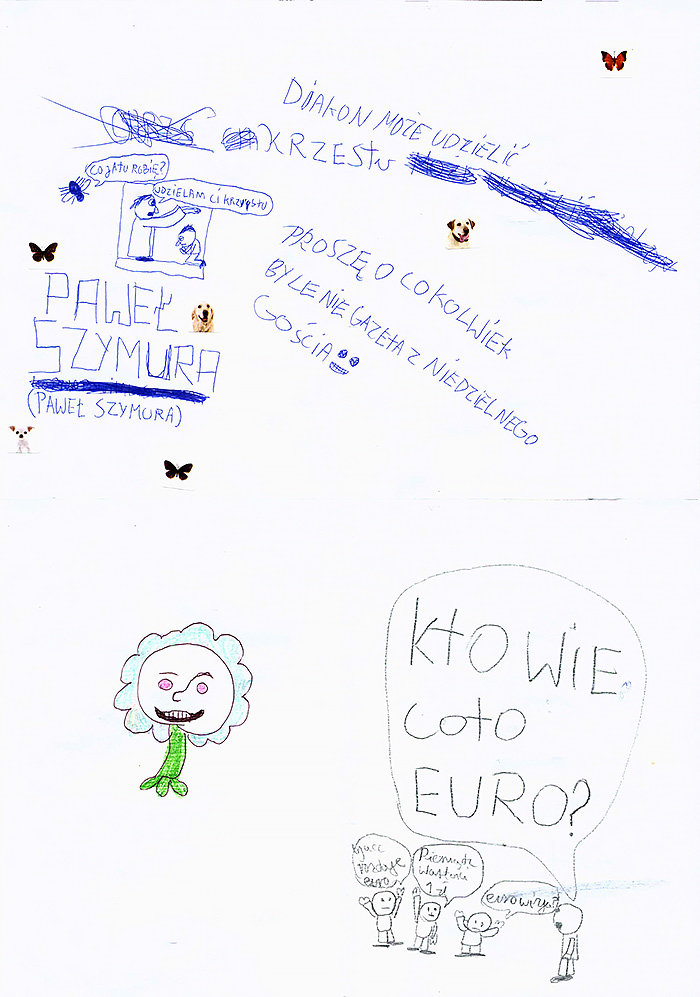 DIAKON MOŻE UDZIELIĆ
KRZESTU
CO JA TU ROBIĘ?
UDZIELAM CI KRZYPSTU
PROSZĘ O COKOLWIEK
BYLE NIE GAZETA Z NIEDZIELNEGO
GOŚCIA
PAWEŁ
SZYMURA
(PAWEŁ SZYMURA)
KTO WIE
CO TO
EURO?
rozdaje
euro
Pieniądz
1 zł
eurowizja?